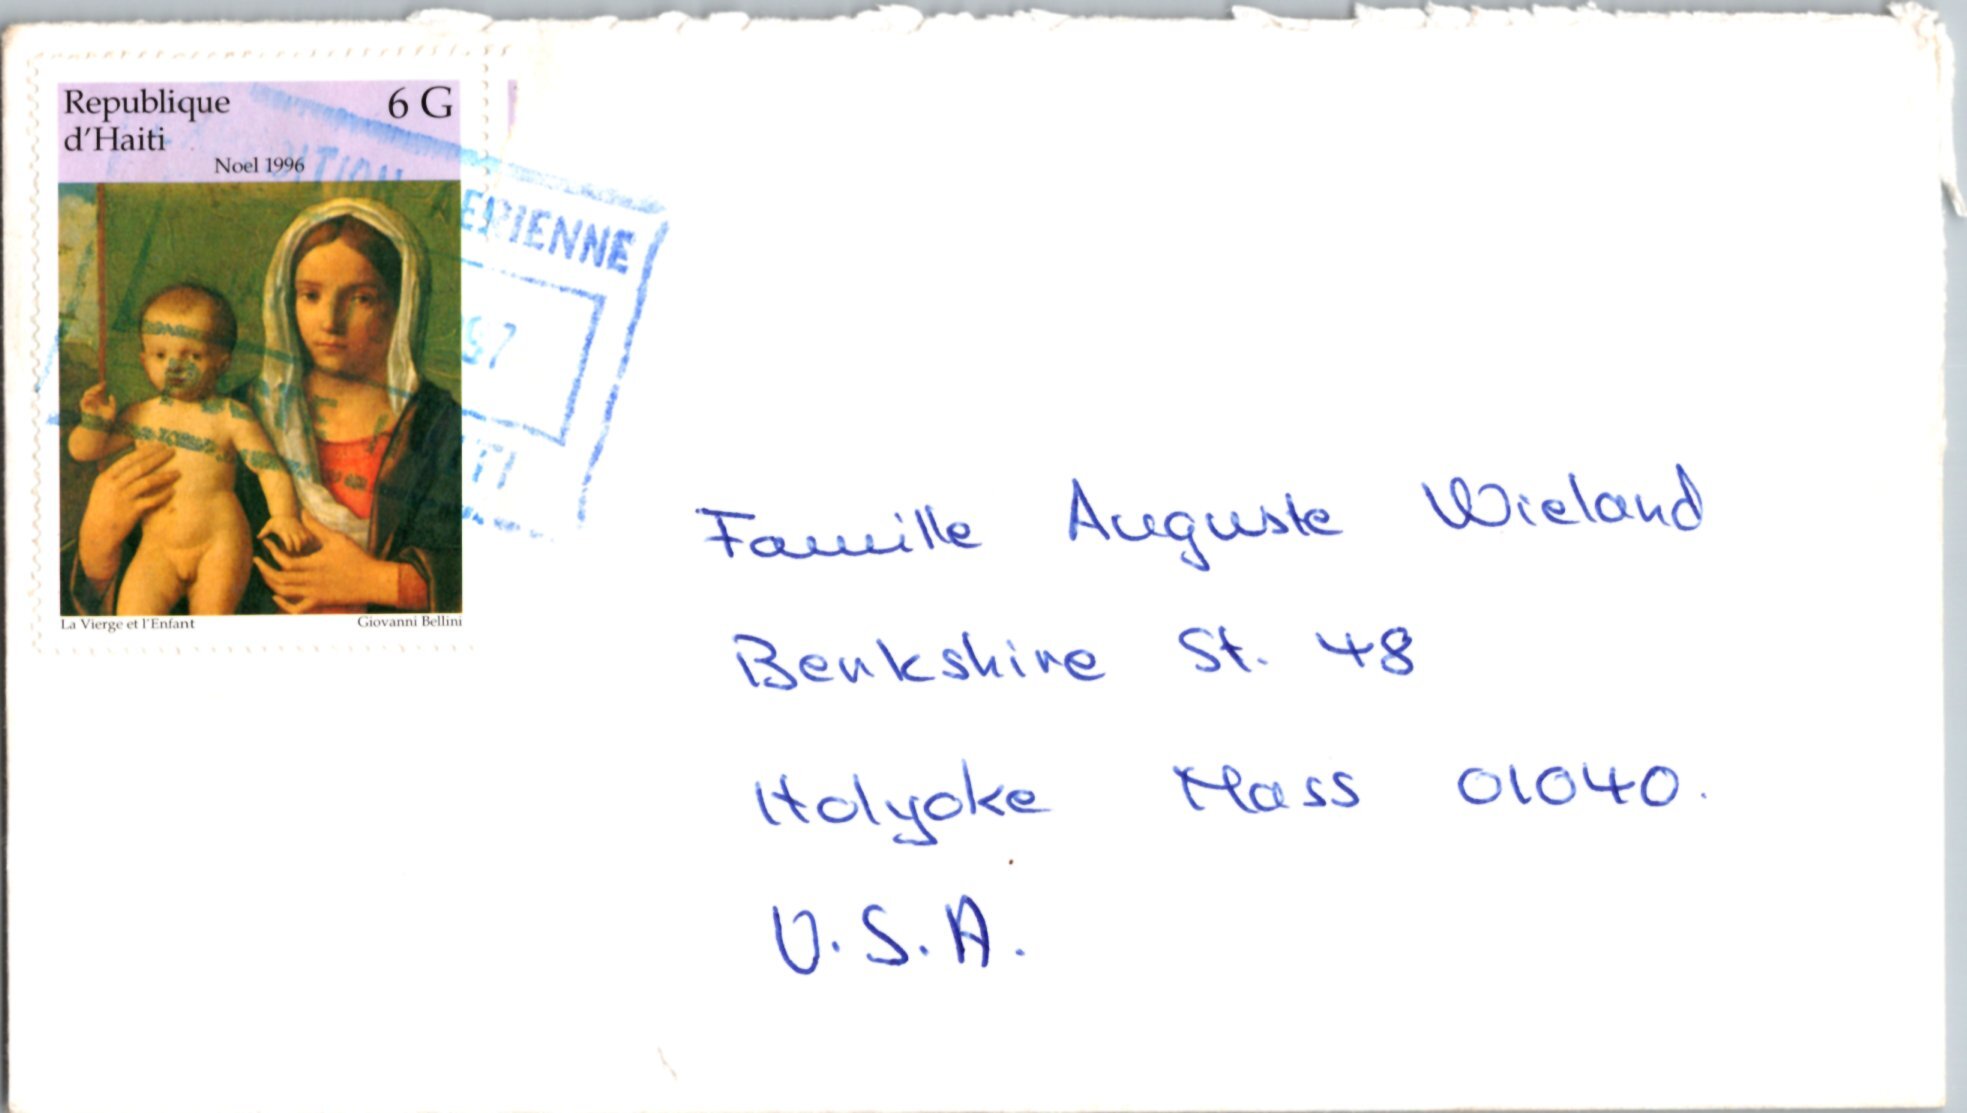 Republique 6 G
d'Haiti
Noel 1996
AERIENNE
97
La Vierge et l'Enfant Giovanni Bellini
Famille Auguste Wieland
Berkshire St. 48
Holyoke Mass 01040.
U.S.A.